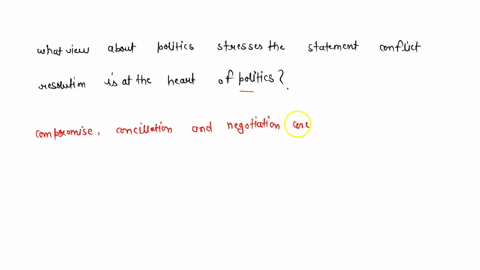 what view about politics stresses the statement conflict
resolution is at the heart of politics?.
compromise, conciliation and negotiation are